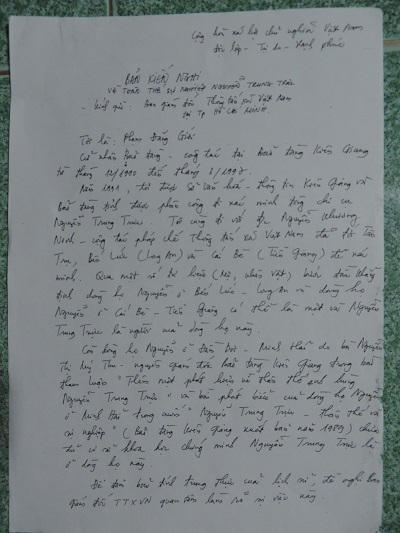 Cộng hòa xã hội chủ nghĩa Việt Nam
Độc lập - Tự do - Hạnh phúc
BẢN KIẾN NGHỊ
VỀ THÂN THẾ SỰ NGHIỆP NGUYỄN TRUNG TRỰC
- Kính gửi: Ban giám đốc Thông tấn xã Việt Nam
tại TP HỒ CHÍ MINH.
Tôi là: Phan Đăng
Cử nhân Bảo tàng - công tác tại Bảo tàng Kiên Giang
từ tháng 12/1990 đến tháng 8/1997.
Năm 1991, tôi được Sở văn hóa - thông tin Kiên Giang và
bảo tàng tỉnh được phân công đi xác minh tông chi cụ
Nguyễn Trung Trực. Tôi cùng đi với Nguyễn Khương
Ninh - công tác Thông tấn xã Việt Nam đã tới Tân
Trụ, Bến Lức (Long An) và Cái Bè (Tiền Giang) để xác
minh. Qua một số tư liệu (Mộ, nhân vật) bước đầu khẳng
định dòng họ Nguyễn ở Bến Lức - Long An và dòng họ
Nguyễn ở Cái Bè - Tiền Giang có thể là một và Nguyễn
Trung Trực là người của dòng họ này.
Còn dòng họ Nguyễn ở Đầm Dơi - Minh Hải do bà Nguyễn
Thị Mỹ - nguyên giám đốc Bảo tàng Kiên Giang trong bài
tham luận "Thêm một phát hiện về thân thế anh hùng
Nguyễn Trung Trực" và bài phát biểu của dòng họ Nguyễn
ở Minh Hải trong cuốn "Nguyễn Trung Trực - thân thế và
sự nghiệp" (Bảo tàng Kiên Giang xuất bản năm 1989) chưa
đủ cơ sở khoa học chứng minh Nguyễn Trung Trực là
ở dòng họ này.
Để đảm bảo tính trung thực của lịch sử, đề nghị Ban
giám đốc TTXVN quan tâm làm rõ sự việc này.